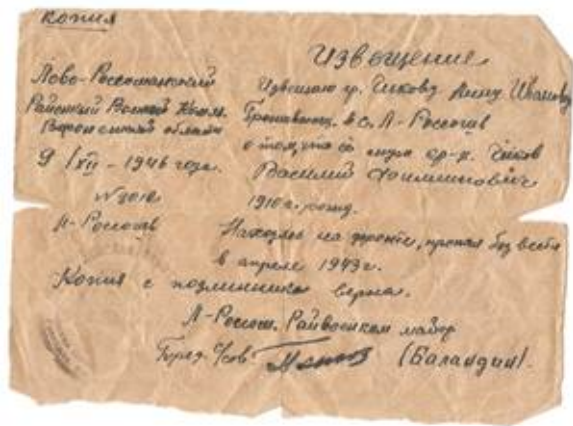 Копия
Извещение
Лево-Россошанский
Районный Военный Комис.
Воронежской области
9/XII - 1946 года.
№ 2010
Л-Россошь
Извещаю гр. Чикову Анну Ивановну
Прожив. в с. Л-Россошь
о том, что её муж кр-ц. Чиков
Василий
1910 г. рожд.
Находясь на фронте, пропал без вести
в апреле 1943 г.
Копия с подлинником верна.
Л-Россош. Райвоенком майор
(Баландин).